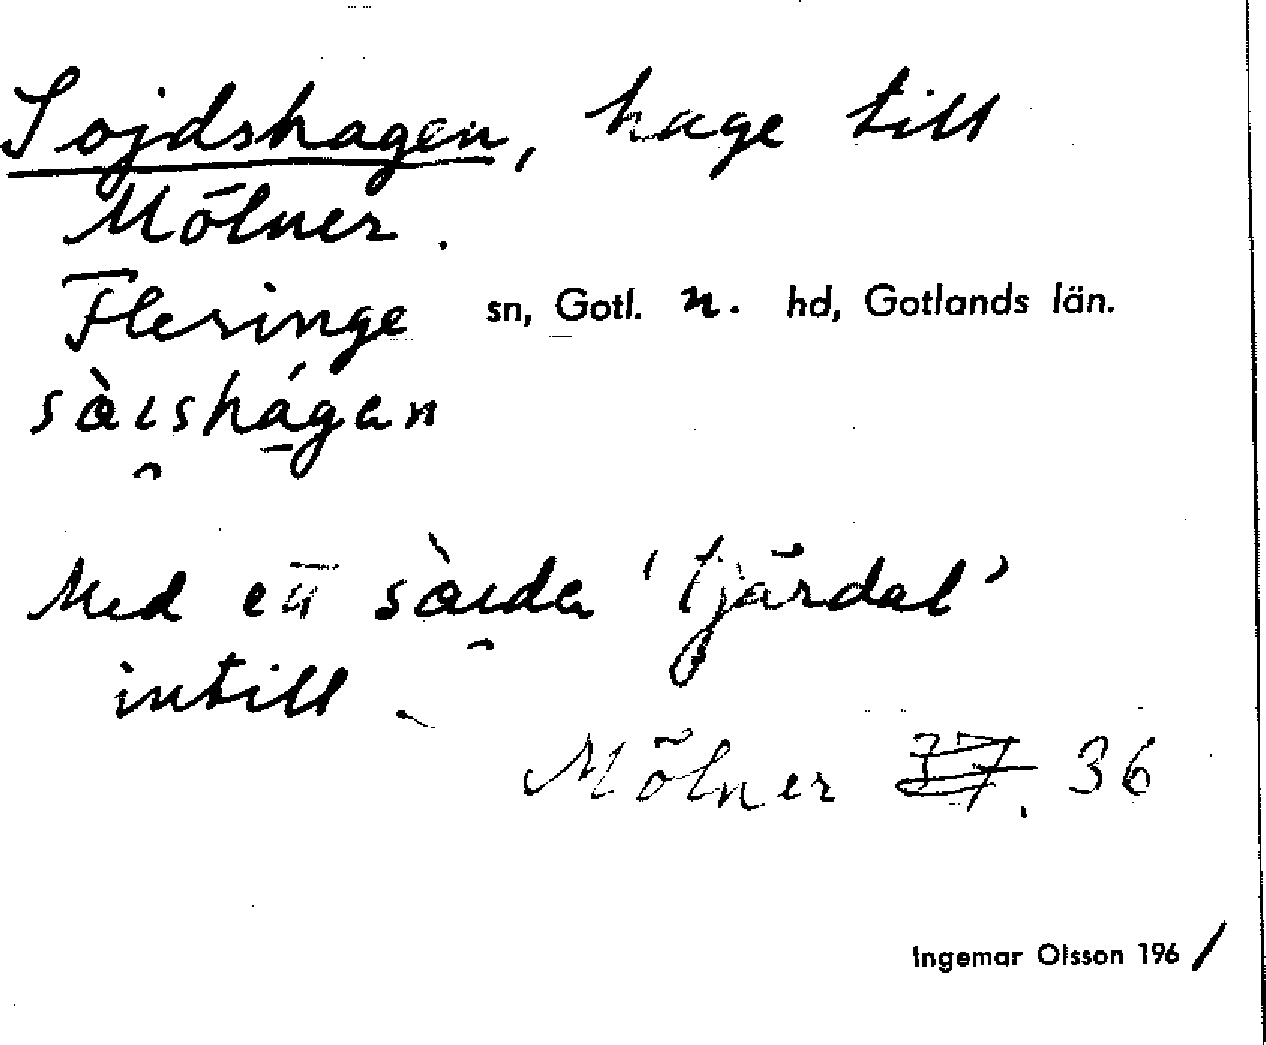 Sojdshagen, hage till
Mölner.
Fleringe sn, Gotl. n. hd, Gotlands län.
sòi̯shá̱gan
Med en sòi̯da 'tjärdal'
intill.
Mölner 77. 36
Ingemar Olsson 1961